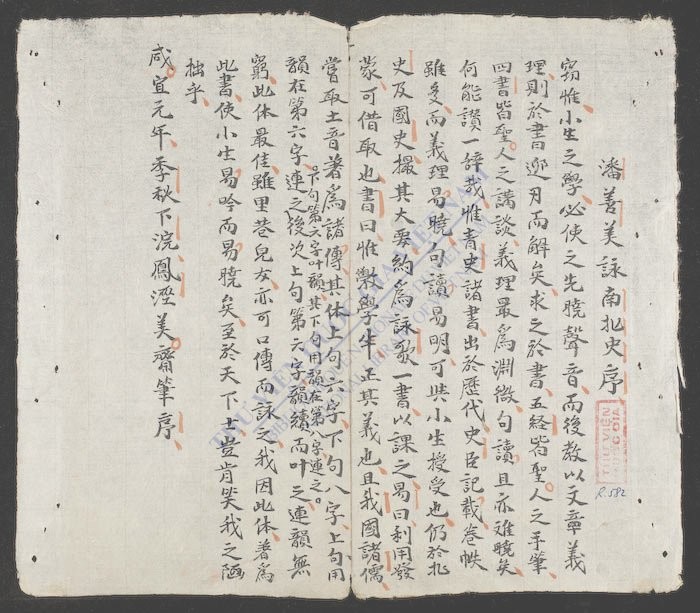 潘善美詠南北史序
竊惟小生之學必使之先曉聲音而後教以文章義
理則於書迎刃而解矣求之於書五經皆聖人之手筆
四書皆聖人之講談義理最爲淵微句讀且亦难曉矣
何能讚一辞哉惟青史諸書出於歷代史臣記載卷帙
雖多而義理易曉句讀易明可與小生授受也仍於北
史及國史撮其大要約爲詠歌一書以課之易曰利用發
蒙可借取也書曰惟斆學半正其義也且我國諸儒
嘗取土音著爲諸傳其体上句六字下句八字上句用
韻在第六字連之後次上句第六字續而叶之連韻無
下句第六字叶韻其下句用韻在第八字連之
窮此体最佳雖里巷兒女亦可口傳而詠之我因此体著爲
此書使小生易吟而易曉矣至於天下士豈肯笑我之陋
拙乎
咸宜元年季秋下浣鳳溼美齋筆序
THƯ VIỆN
QUỐC GIA
R.582
THƯ VIỆN QUỐC GIA VIỆT NAM
NATIONAL LIBRARY OF VIETNAM